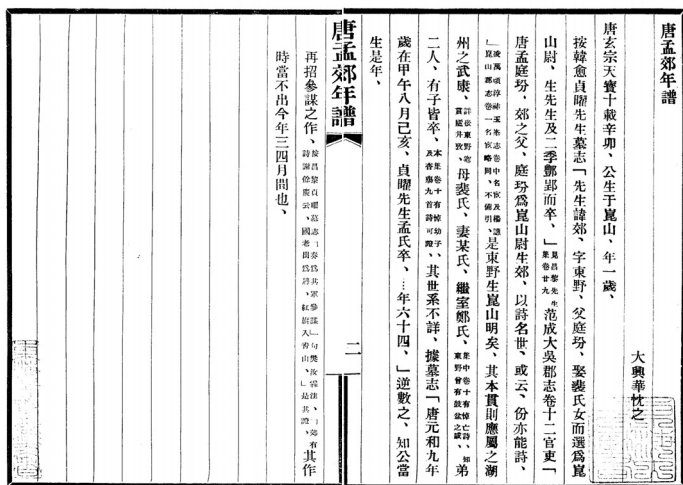 唐孟郊年譜
大興華忱之
唐玄宗天寶十載辛卯、公生于崑山、年一歲、
按韓愈貞曜先生墓志「先生諱郊、字東野、父庭玢、娶裴氏女而選爲崑
山尉、生先生及二季酆郢而卒、」見昌黎先生集卷廿九范成大吳郡志卷十二官吏「
唐孟庭玢、郊之父、庭玢爲崑山尉生郊、以詩名世、或云、份亦能詩、
」凌萬頃淳祐玉峯志卷中名宦及楊譓崑山郡志卷一名宦略同、不備引、是東野生崑山明矣、其本貫則應屬之湖
州之武康、母裴氏、妻某氏、繼室鄭氏、集中卷十有悼亡詩、知東野曾有鼓盆之戚、弟
二人、有子皆卒、本集卷十有悼幼子、及杏殤九首詩可證、其世系不詳、據墓志「唐元和九年
歲在甲午八月己亥、貞曜先生孟氏卒、…年六十四、」逆數之、知公當
生是年、
唐孟郊年譜
二
再招參謀之作、按昌黎貞曜墓志「奏爲其軍參謀」句樊汝霖注、「郊有詩謝
時當不出今年三四月間也、